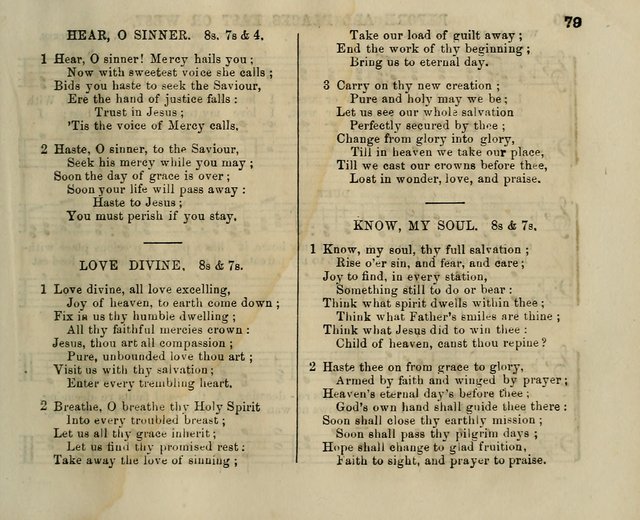 79
HEAR, O SINNER. 8s. 7s & 4.
1 Hear, O sinner! Mercy hails you;
Now with sweetest voice she calls;
Bids you haste to seek the Saviour,
Ere the hand of justice falls:
Trust in Jesus;
'Tis the voice of Mercy calls.
2 Haste, O sinner, to the Saviour,
Seek his mercy while you may;
Soon the day of grace is over;
Soon your life will pass away:
Haste to Jesus;
You must perish if you stay.
LOVE DIVINE. 8s & 7s.
1 Love divine, all love excelling,
Joy of heaven, to earth come down;
Fix in us thy humble dwelling;
All thy faithful mercies crown:
Jesus, thou art all compassion;
Pure, unbounded love thou art;
Visit us with thy salvation;
Enter every trembling heart.
2 Breathe, O breathe thy Holy Spirit
Into every troubled breast;
Let us all thy grace inherit;
Let us find thy promised rest:
Take away the love of sinning;
Take our load of guilt away;
End the work of thy beginning;
Bring us to eternal day.
3 Carry on thy new creation;
Pure and holy may we be;
Let us see our whole salvation
Perfectly secured by thee;
Change from glory into glory,
Till in heaven we take our place,
Till we cast our crowns before thee,
Lost in wonder, love, and praise.
KNOW, MY SOUL. 8s & 7s.
1 Know, my soul, thy full salvation;
Rise o'er sin, and fear, and care;
Joy to find, in every station,
Something still to do or bear:
Think what spirit dwells within thee;
Think what Father's smiles are thine;
Think what Jesus did to win thee:
Child of heaven, canst thou repine?
2 Haste thee on from grace to glory,
Armed by faith and winged by prayer;
Heaven's eternal day's before thee;
God's own hand shall guide thee there:
Soon shall close thy earthly mission;
Soon shall pass thy pilgrim days;
Hope shall change to glad fruition,
Faith to sight, and prayer to praise.